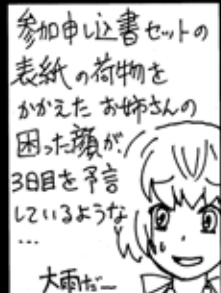 参加申し込書セットの
表紙の荷物を
かかえたお姉さんの
困った顔が、
3日目を予言
しているような
…
大雨だー